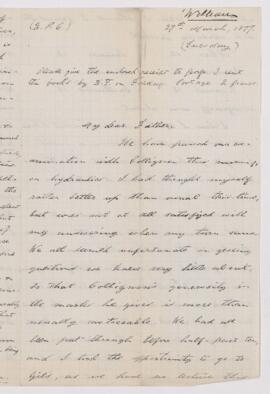 27th March, 1877.
(Tuesday)
Please give the enclosed receipt to
My dear Father,
We have passed our ex-
amination with Collignon this morning
on hydraulics. I had thought myself
rather better up than usual this time,
but was not at all satisfied with
my answering when my turn came.
We all seemed unfortunate in getting
questions we knew very little about,
so that Collignon's generosity in
the marks he gives is more than
usually noticeable. We had all
been put through before half-past ten,
and I had the opportunity to go to
as we have no lecture this